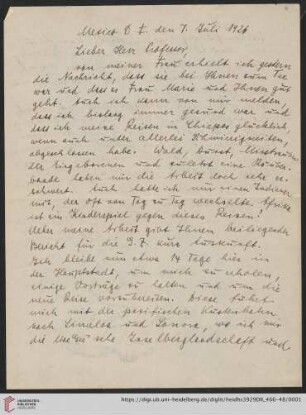 Mexico D F. den 7. Juli 1926
Lieber Herr Professor,
von meiner Frau erhielt ich gestern
die Nachricht, dass sie bei Ihnen zum Tee
war und dass es Frau Marie und Ihnen gut
geht. Auch ich kann von mir melden,
dass ich bislang immer gesund war und
dass ich meine Reisen in Chiapas glücklich,
wenn auch unter allerlei Schwierigkeiten,
abgeschlossen habe. Wald, Durst, Misstrauen
der Eingeborenen und zuletzt eine Räuber-
bande haben mir die Arbeit doch sehr er-
schwert. Auch hatte ich nur einen Indianer
mit, der oft von Tag zu Tag wechselte. Afrika
ist ein Kinderspiel gegen dieses Reisen!
Ueber meine Arbeit gibt Ihnen beiliegender
Bericht für die G. Z. kurz Auskunft.
Ich bleibe nun etwa 14 Tage hier in
der Hauptstadt, um mich zu erholen,
einige Vorträge zu halten und um die
neue Reise vorzubereiten. Diese führt
mich mit der pazifischen Küstenbahn
nach Sinaloa und Sonora, wo ich mir
die Inselberglandschaft und
UNIVERSITÄTS-
BIBLIOTHEK
HEIDELBERG
https://digi.ub.uni-heidelberg.de/diglit/heidhs3929DII_460-48/0001